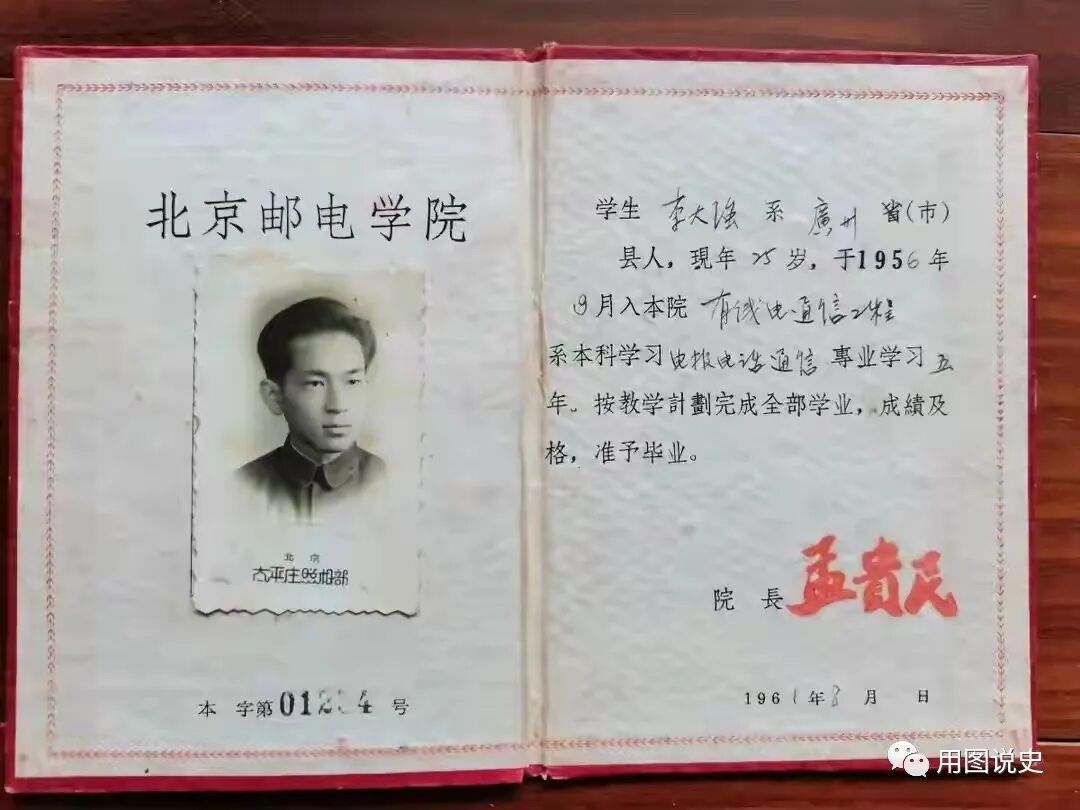 北京邮电学院
北京
太平庄照相部
本 字第 号
学生 李大强 系 廣州 省(市)
县人，現年 25 岁，于1956年
9月入本院 有线电通信工程
系本科学习 电报电话通信 專业学习 五
年。按教学計劃完成全部学业，成績及
格，准予毕业。
院 長 孟貴民
1961年8月 日
用图说史